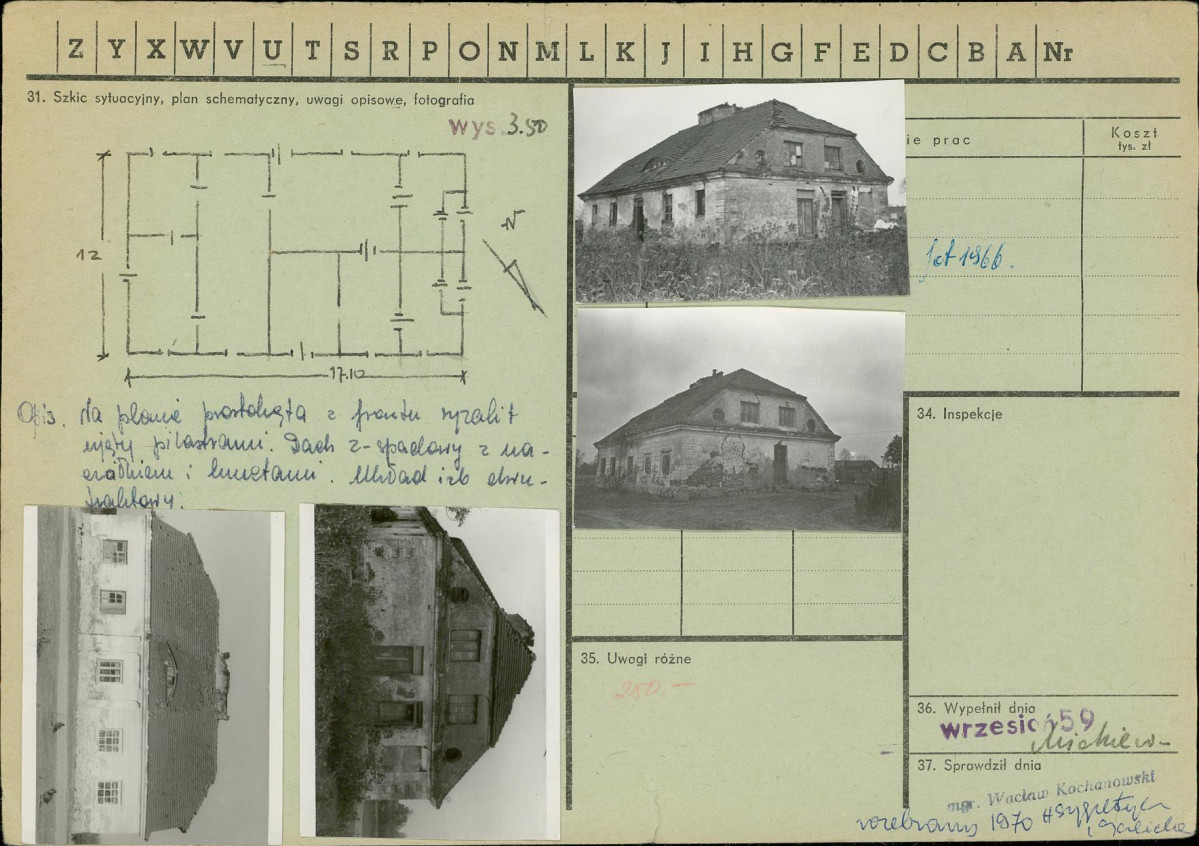 Z Y X W V U T S R P O N M L K J I H G F E D C B A Nr
31. Szkic sytuacyjny, plan schematyczny, uwagi opisowe, fotografia
wys. 3.50
12
N
17.10
Opis. Na planie prostokąta z frontu ryzalit
ujęty pilastrami. Dach 2-spadowy z na-
czółkiem i lunetami. Układ izb dwu-
traktowy.
ie prac
Koszt
tys. zł
fot 1966.
34. Inspekcje
35. Uwagi różne
250.—
36. Wypełnił dnia
wrzesień 59
37. Sprawdził dnia
mgr. Wacław Kochanowski
rozebrany 1970